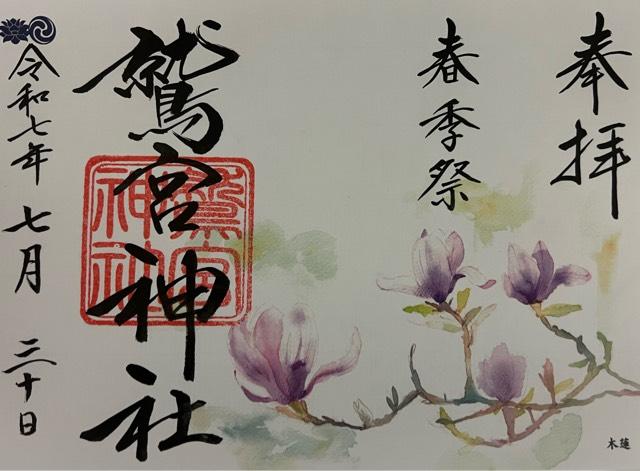 奉拝
春季祭
鷲宮神社
鷲宮
神社
令和七年 七月 三十日
木蓮